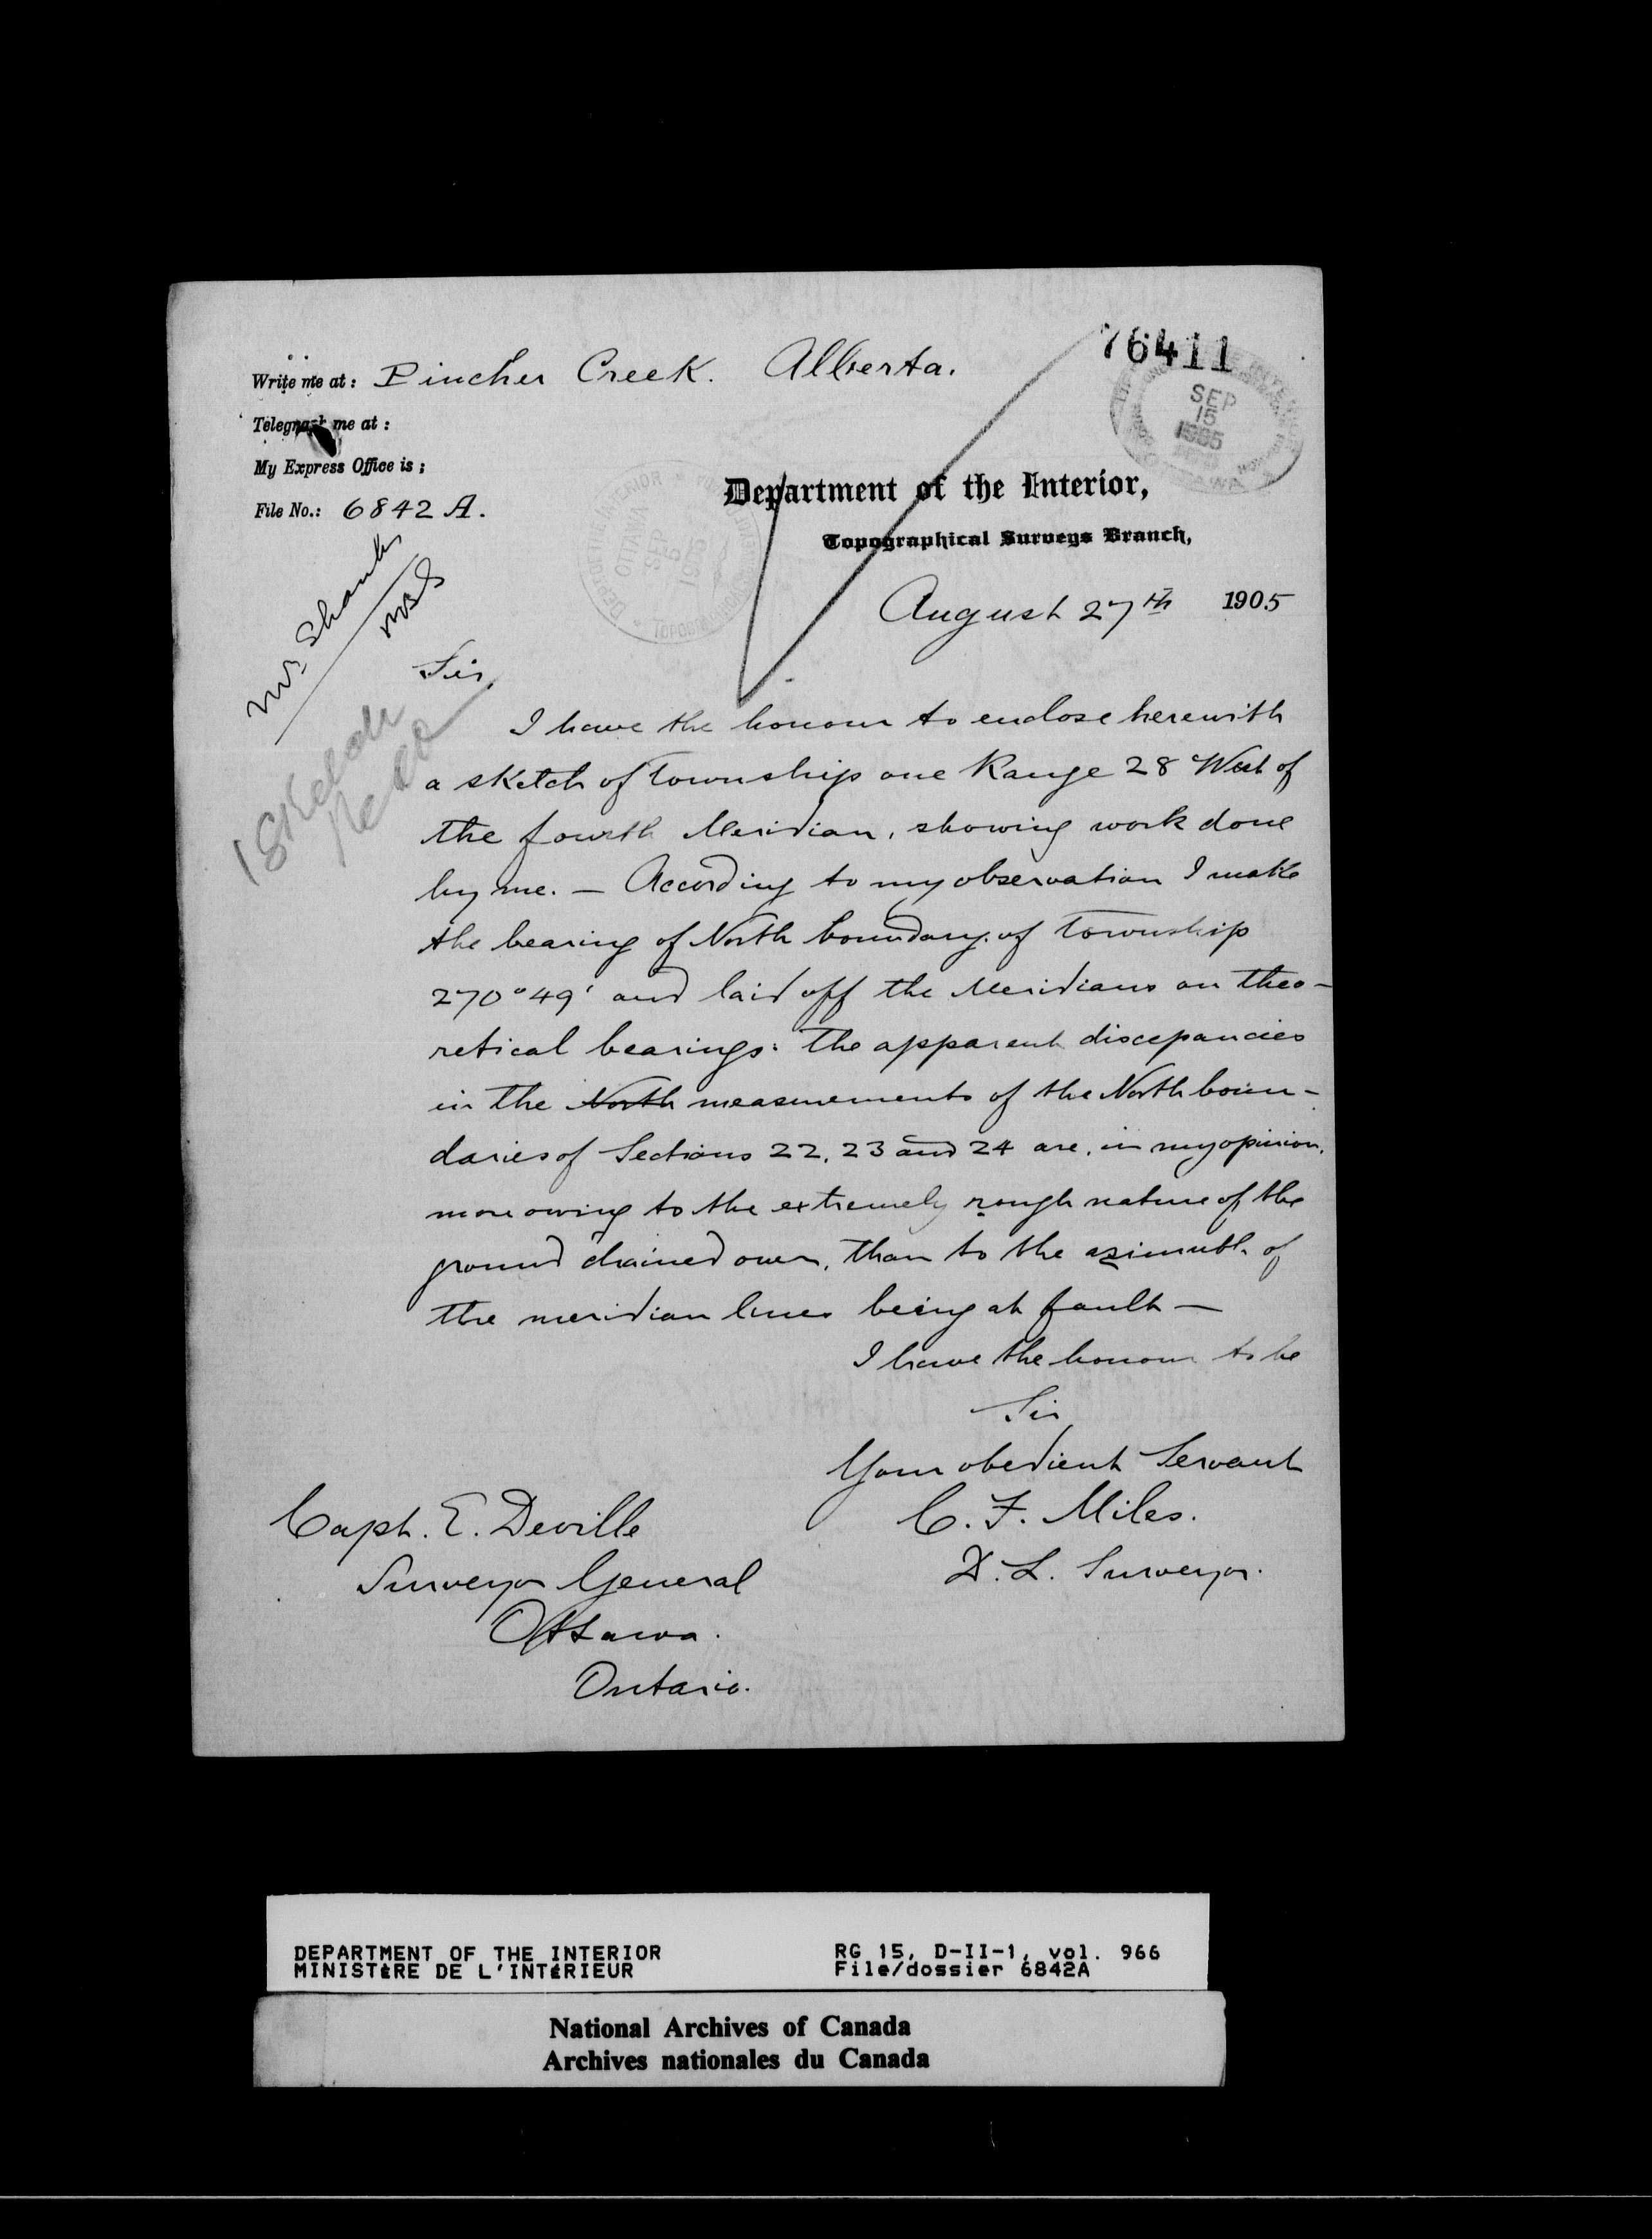 76411
Write me at: Pincher Creek. Alberta.
Telegraph me at :
My Express Office is ;
File No.: 6842 A.
SEP
15
1905
OTTAWA
Department of the Interior,
Topographical Surveys Branch,
DEPT OF THE INTERIOR
OTTAWA
SEP
15
1905
August 27th 1905
Mr. Shanks
1 Sketch
Sir,
I have the honour to enclose herewith
a sketch of Township one Range 28 West of
the fourth Meridian, showing work done
by me. — According to my observation I make
the bearing of North boundary of Township
270° 49' and laid off the Meridians on theo-
retical bearings: The apparent discepancies
in the North measurements of the North boun-
daries of Sections 22, 23 and 24 are, in my opinion,
more owing to the extremely rough nature of the
ground chained over, than to the azimuth of
the meridian lines being at fault —
I have the honour to be
Sir
Your obedient Servant
C. F. Miles.
D. L. Surveyor.
Capt. E. Deville
Surveyor General
Ottawa.
Ontario.
DEPARTMENT OF THE INTERIOR
MINISTÈRE DE L'INTÉRIEUR
RG 15, D-II-1, vol. 966
File/dossier 6842A
National Archives of Canada
Archives nationales du Canada